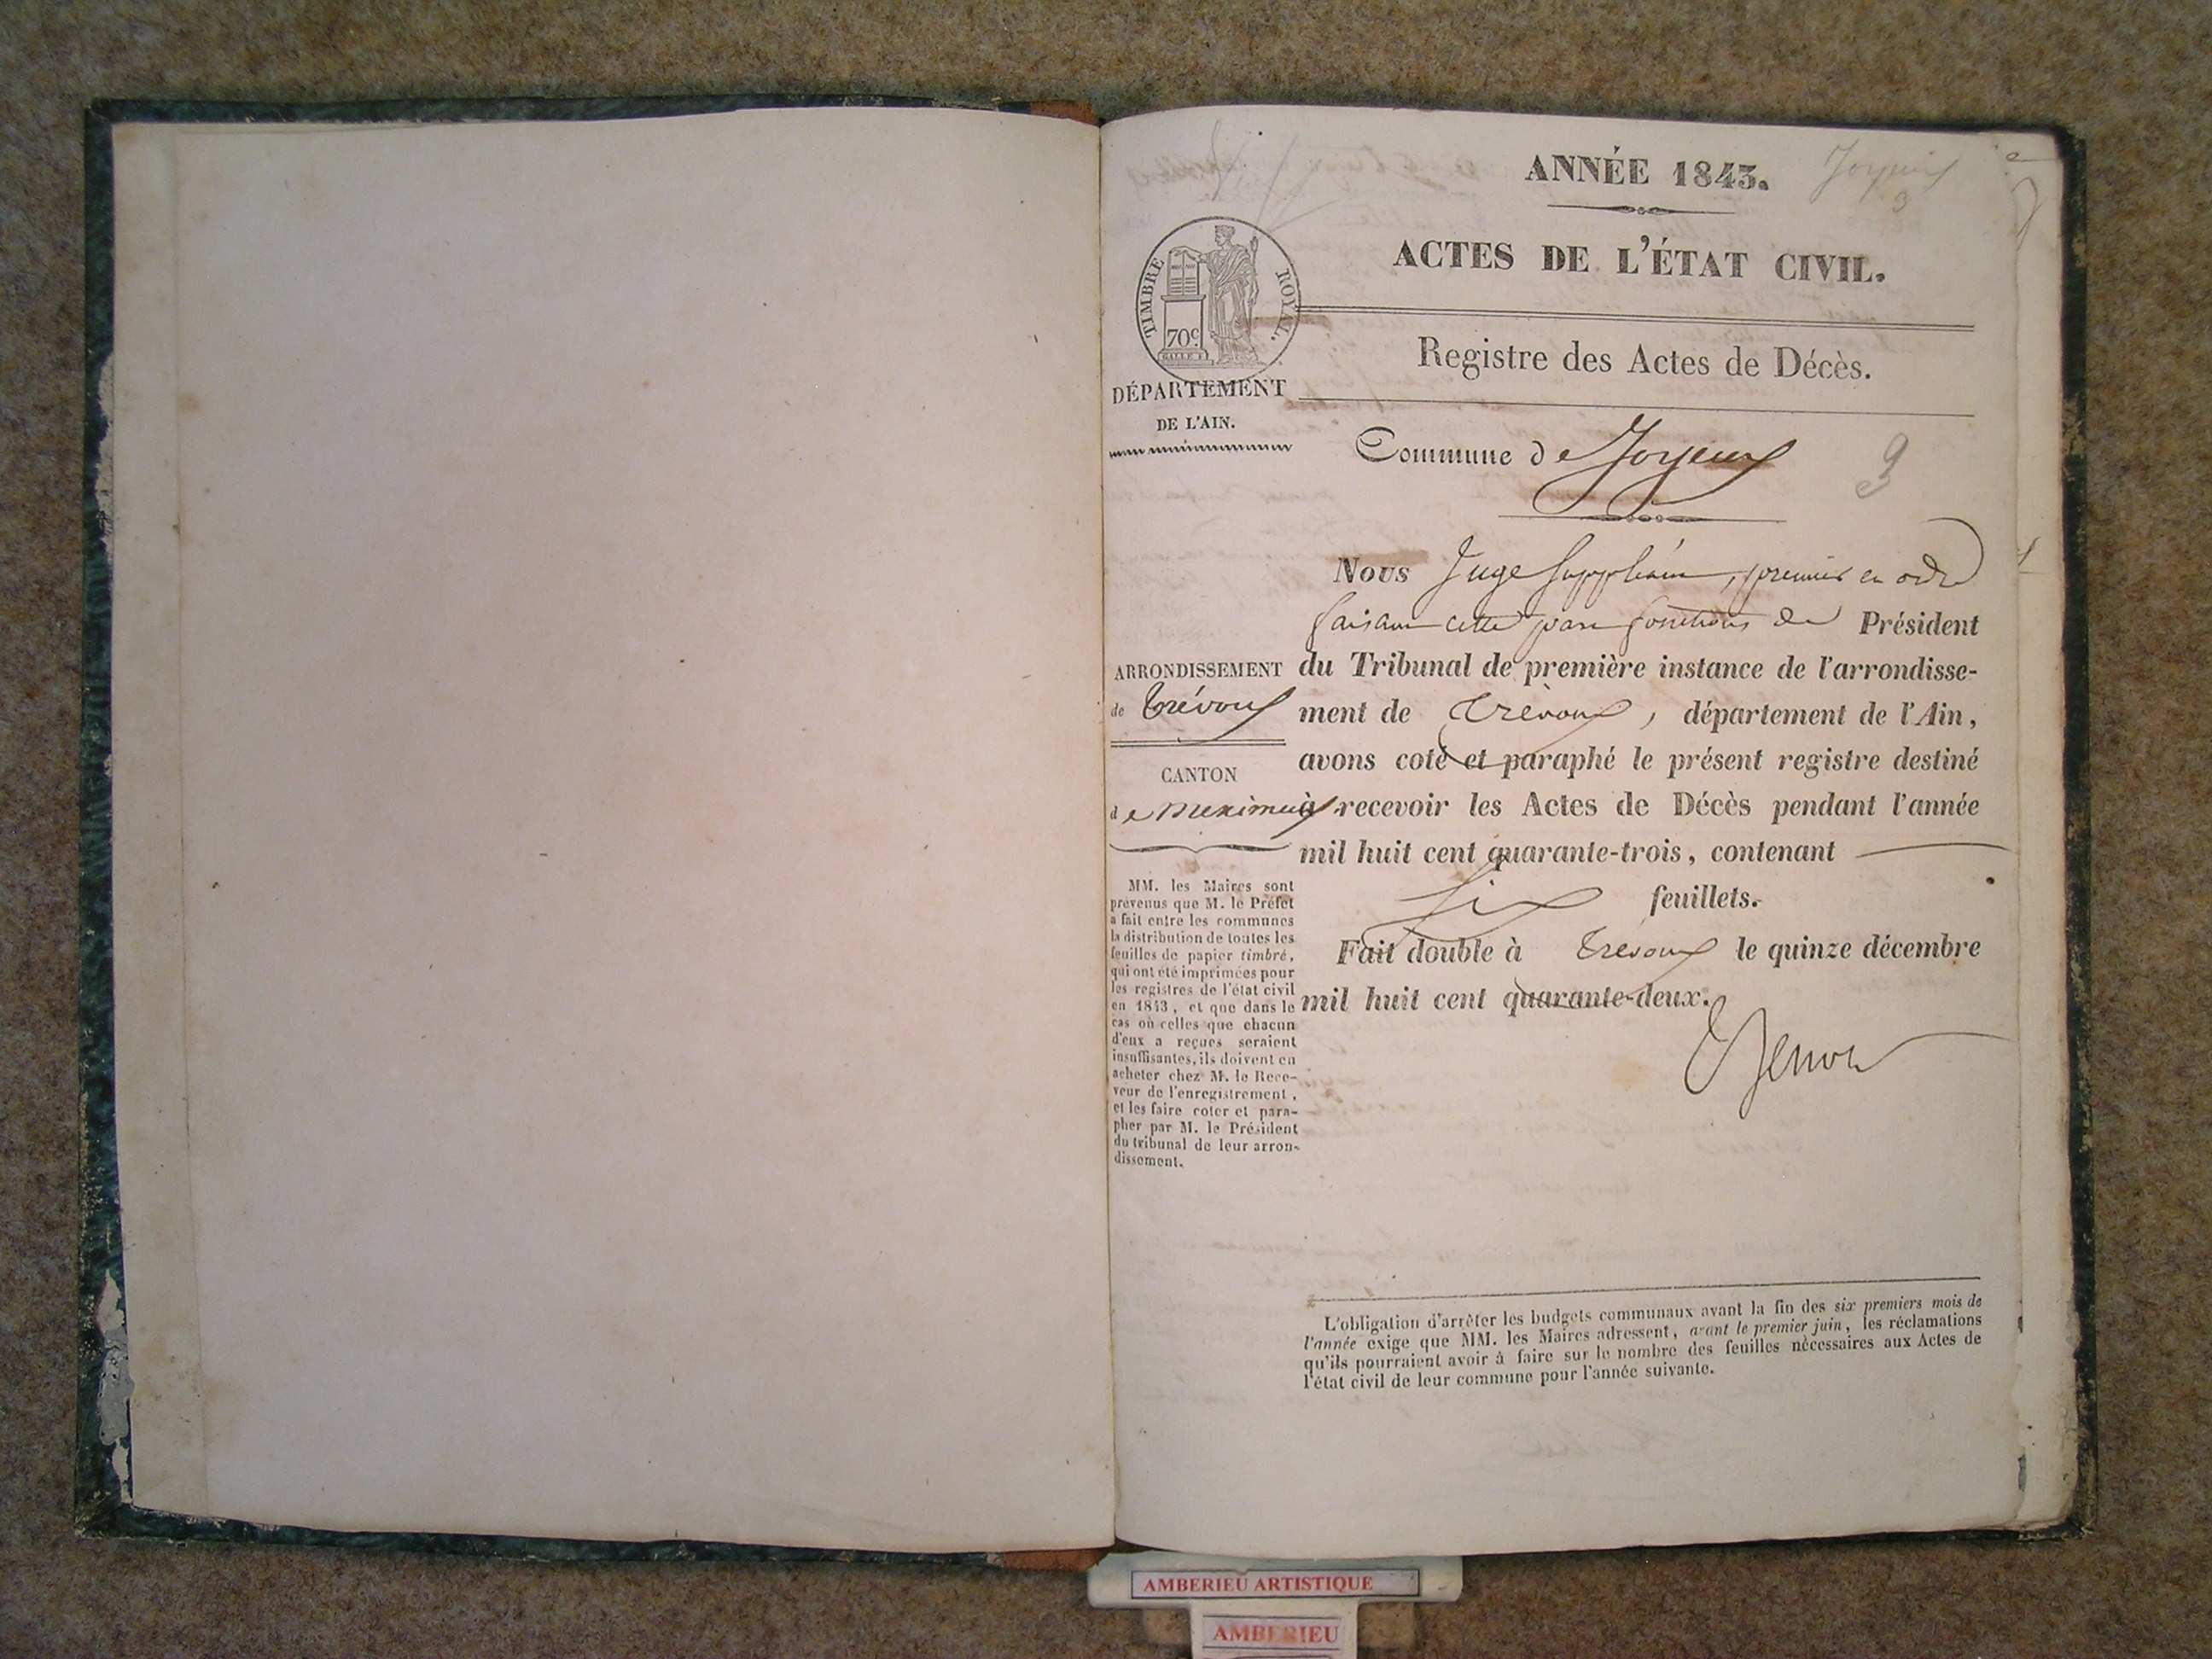 ANNÉE 1843.
Joyeux
3
ACTES DE L'ÉTAT CIVIL.
TIMBRE ROYAL.
70c
Registre des Actes de Décès.
DÉPARTEMENT
DE L'AIN.
Commune de Joyeux
9
3
Nous Juge Suppléant, premier en ordre
faisant cette part fonctions de Président
ARRONDISSEMENT
de Trévoux
du Tribunal de première instance de l'arrondisse-
ment de Trévoux, département de l'Ain,
avons coté et paraphé le présent registre destiné
CANTON
de Meximieux
à recevoir les Actes de Décès pendant l'année
mil huit cent quarante-trois, contenant
Six feuillets.
Fait double à Trévoux le quinze décembre
mil huit cent quarante-deux.
MM. les Maires sont
prévenus que M. le Préfet
a fait entre les communes
la distribution de toutes les
feuilles de papier timbré,
qui ont été imprimées pour
les registres de l'état civil
en 1843, et que dans le
cas où celles que chacun
d'eux a reçues seraient
insuffisantes, ils doivent en
acheter chez M. le Rece-
veur de l'enregistrement,
et les faire coter et para-
pher par M. le Président
du tribunal de leur arron-
dissement.
L'obligation d'arrêter les budgets communaux avant la fin des six premiers mois de
l'année exige que MM. les Maires adressent, avant le premier juin, les réclamations
qu'ils pourraient avoir à faire sur le nombre des feuilles nécessaires aux Actes de
l'état civil de leur commune pour l'année suivante.
AMBERIEU ARTISTIQUE
AMBERIEU